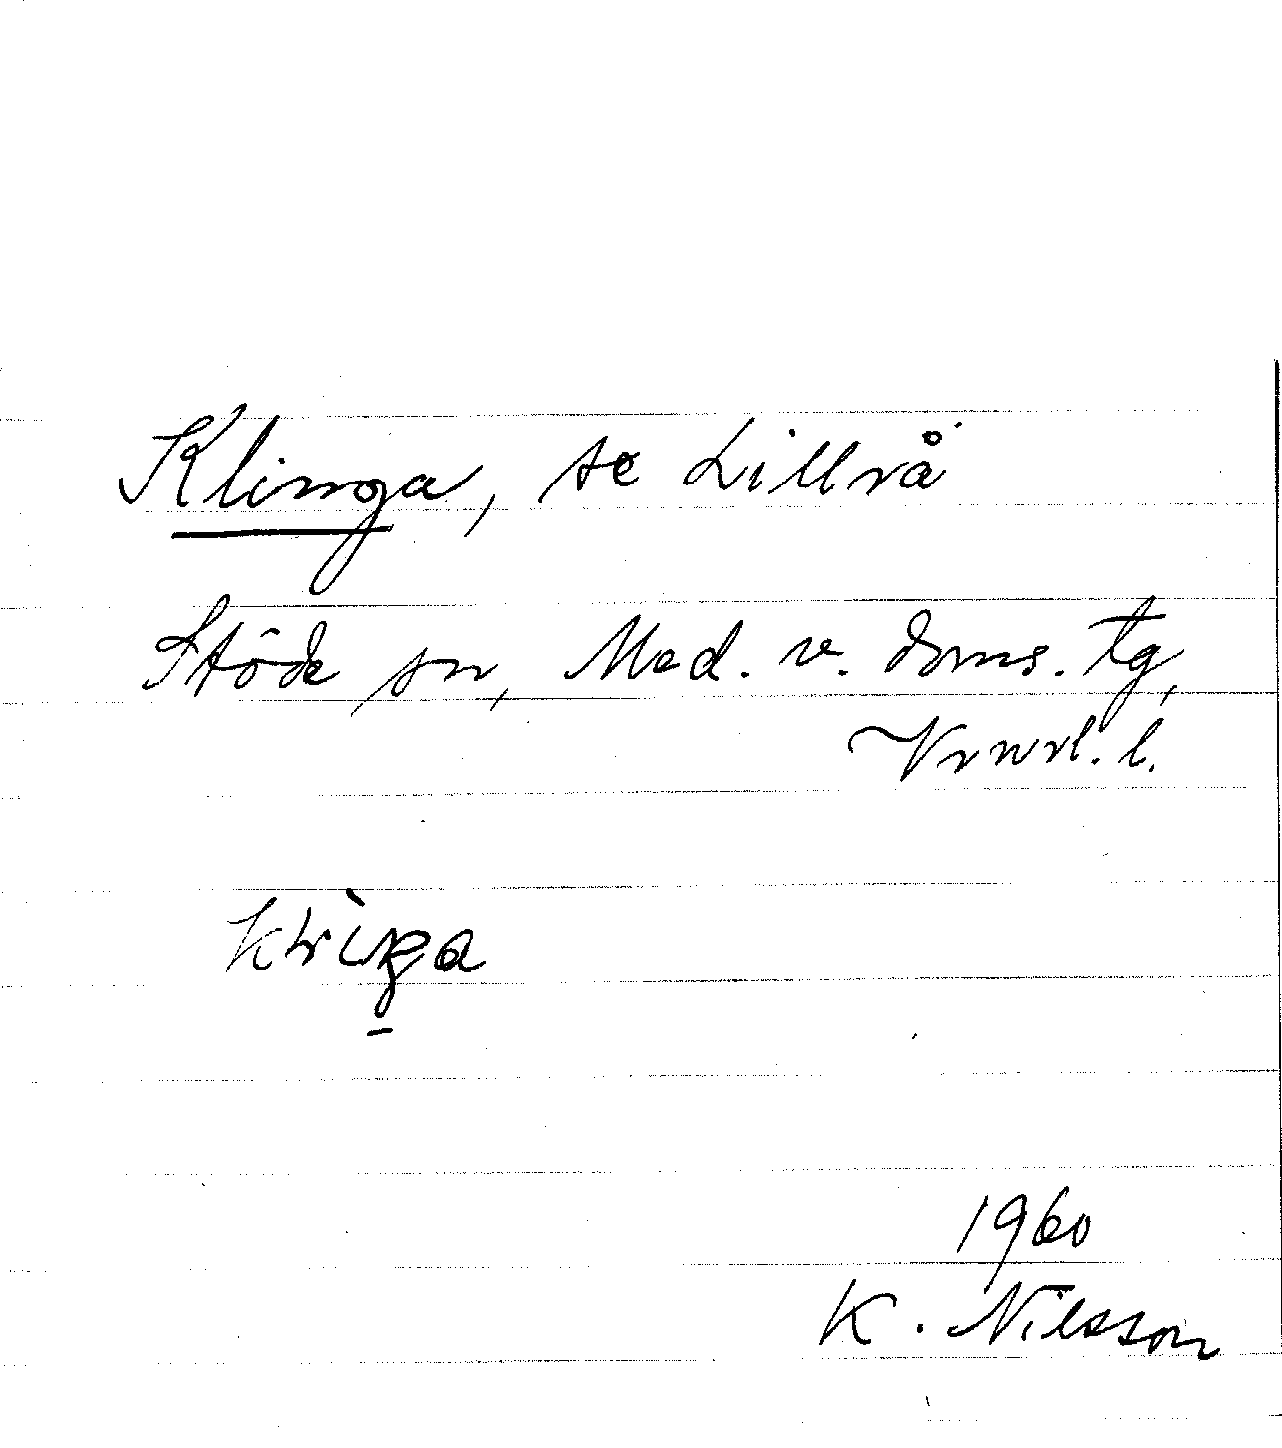 Klinga, se Lillrå
Stöde sn, Med. v. doms. tg,
Vrnrl. l.
1960
K. Nilsson